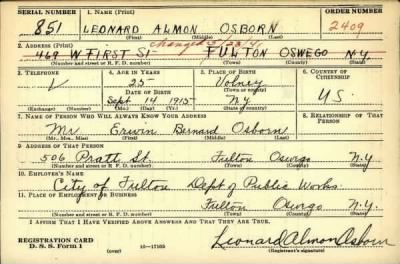 SERIAL NUMBER 1. NAME (Print) ORDER NUMBER
851 LEONARD ALMON OSBORN 2409
(First) (Middle) (Last)
2. ADDRESS (Print) changed 5/23/41
469 W FIRST ST FULTON OSWEGO N.Y.
(Number and street or R. F. D. number) (Town) (County) (State)
3. TELEPHONE 4. AGE IN YEARS 5. PLACE OF BIRTH 6. COUNTRY OF CITIZENSHIP
25 Volney
DATE OF BIRTH (Town or county)
Sept 14 1915 N.Y. U.S.
(Exchange) (Number) (Mo.) (Day) (Yr.) (State or country)
7. NAME OF PERSON WHO WILL ALWAYS KNOW YOUR ADDRESS 8. RELATIONSHIP OF THAT PERSON
Mr. Erwin Bernard Osborn
(Mr., Mrs., Miss) (First) (Middle) (Last)
9. ADDRESS OF THAT PERSON
506 Pratt St. Fulton Oswego N.Y.
(Number and street or R. F. D. number) (Town) (County) (State)
10. EMPLOYER'S NAME
City of Fulton Dept of Public Works
11. PLACE OF EMPLOYMENT OR BUSINESS
Fulton Oswego N.Y.
(Number and street or R. F. D. number) (Town) (County) (State)
I AFFIRM THAT I HAVE VERIFIED ABOVE ANSWERS AND THAT THEY ARE TRUE.
REGISTRATION CARD
D. S. S. Form 1 (over) 16-17105 Leonard Almon Osborn
(Registrant's signature)